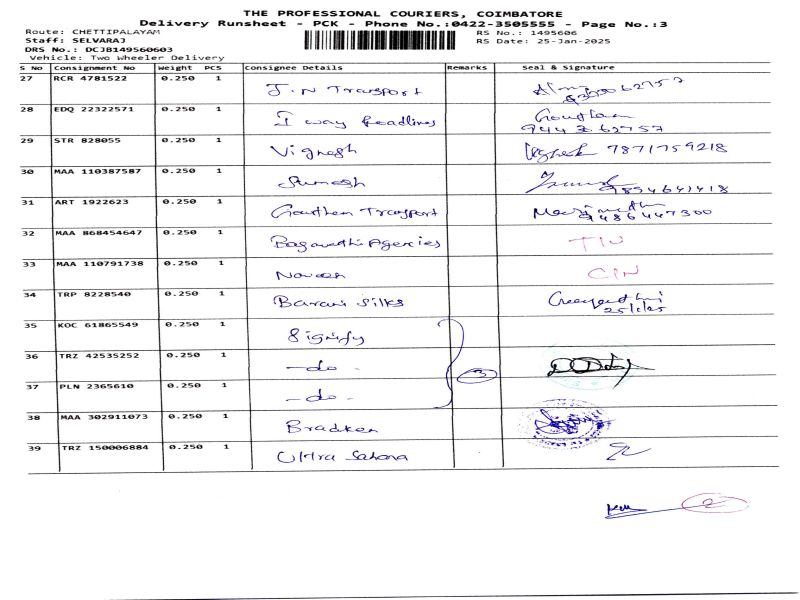 THE PROFESSIONAL COURIERS, COIMBATORE
Delivery Runsheet - PCK - Phone No.:0422-3505555 - Page No.:3
Route: CHETTIPALAYAM
RS No.: 1495606
Staff: SELVARAJ
RS Date: 25-Jan-2025
DRS No.: DCJB149560603
Vehicle: Two Wheeler Delivery
S No Consignment No Weight PCS Consignee Details Remarks Seal & Signature
27 RCR 4781522 0.250 1 J.N Transport
28 EDQ 22322571 0.250 1 I way feadlines Goutham
29 STR 828055 0.250 1 Vignesh Vignesh 7871759218
30 MAA 110387587 0.250 1 Sumesh 9894641418
31 ART 1922623 0.250 1 Gouthem Transport 9486447300
32 MAA 868454647 0.250 1 Bagavathi Agencies TIN
33 MAA 110791738 0.250 1 Naveen CIN
34 TRP 8228540 0.250 1 Barani Silks
25/1/25
35 KOC 61865549 0.250 1 Signify
36 TRZ 42535252 0.250 1 -do- 3
37 PLN 2365610 0.250 1 -do-
38 MAA 302911073 0.250 1 Bradken
39 TRZ 150006884 0.250 1 Ultra Sahana
2